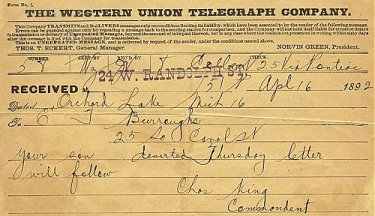 Form No. 1.
THE WESTERN UNION TELEGRAPH COMPANY.
This Company TRANSMITS and DELIVERS messages only on conditions limiting its liability, which have been assented to by the sender of the following message.
Errors can be guarded against only by repeating a message back to the sending station for comparison, and the Company will not hold itself liable for errors or delays
in transmission or delivery of Unrepeated Messages, beyond the amount of tolls paid thereon, nor in any case where the claim is not presented in writing within sixty days
after the message is filed with the Company for transmission.
This is an UNREPEATED MESSAGE, and is delivered by request of the sender, under the conditions named above.
THOS. T. ECKERT, General Manager. NORVIN GREEN, President.
24 W. RANDOLPH ST.
25 Via Pontiac
RECEIVED Apl 16 1892
Dated Orchard Lake Mich 16
To Burroughs
25 So Canal St
Your son deserted Thursday letter
will follow
Chas King
Commandent